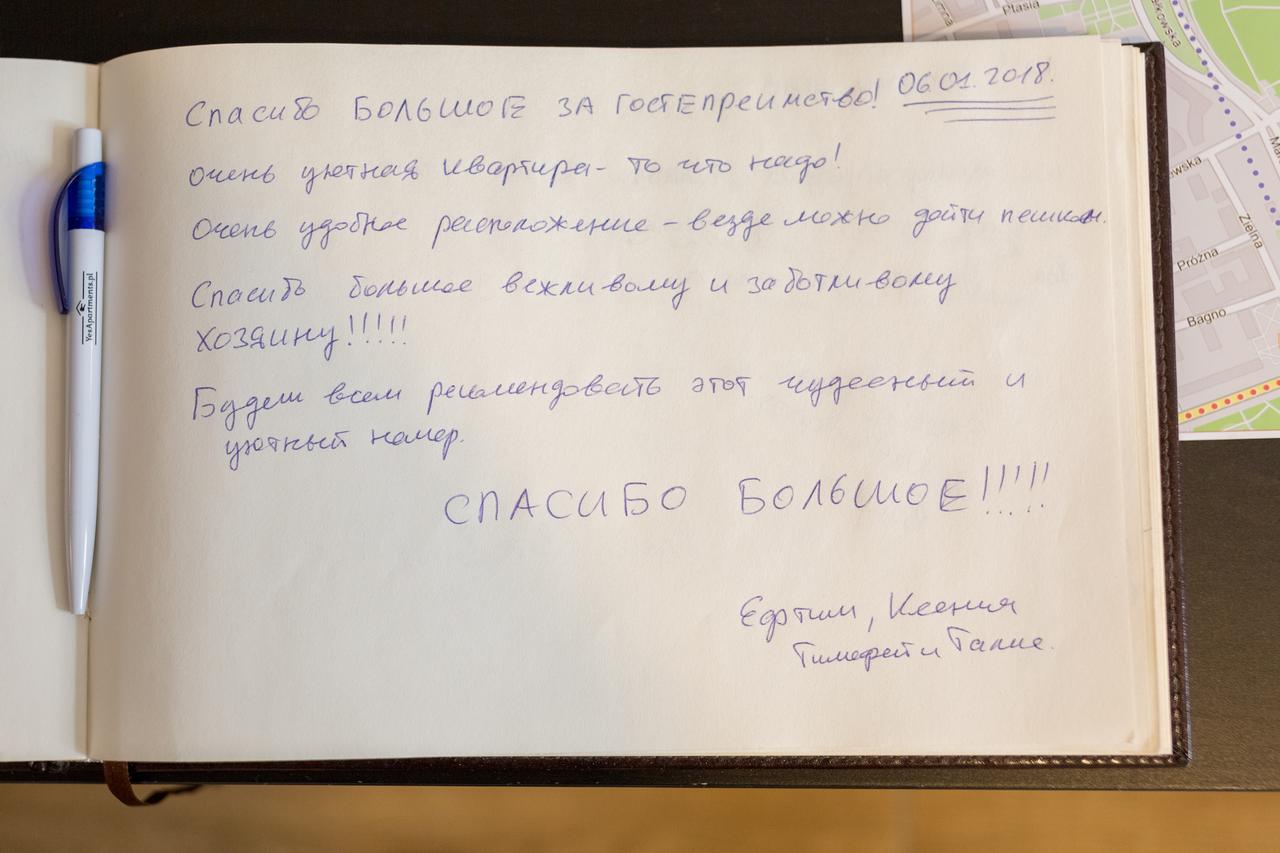 Спасибо БОЛЬШОЕ ЗА ГОСТЕпреимство! 06.01.2018.
Очень уютная квартира - то что надо!
Очень удобное расположение - везде можно дойти пешком.
Спасибо большое вежливому и заботливому
хозяину!!!!!
Будем всем рекомендовать этот чудесный и
уютный номер.
СПАСИБО БОЛЬШОЕ!!!!!
Ефтим, Ксения
Тимофей и
YesApartments.pl
Ptasia
Zielna
Próżna
Bagno